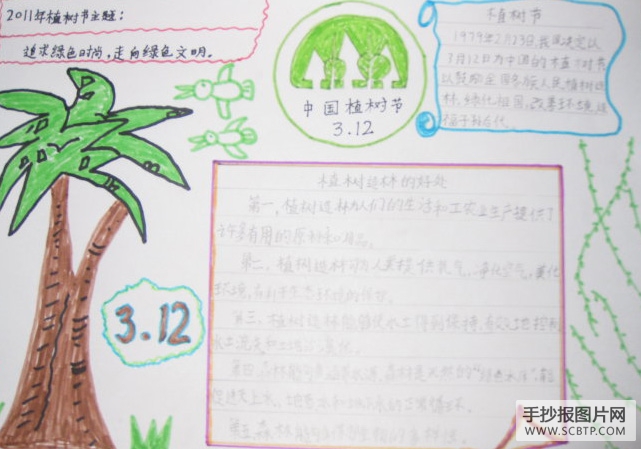 2011年植树节主题:
追求绿色时尚,走向绿色文明。
中国植树节
3.12
植树节
1979年2月23日我国决定以
3月12日为中国的植树节
以鼓励全国各族人民植树造
林,绿化祖国,改善环境,造
福子孙后代。
植树造林的好处
第一,植树造林为人们的生活和工农业生产提供了
许多有用的原料和用品。
第二,植树造林可为人类提供氧气,净化空气,美化
环境,有利于生态环境的保护。
第三,植树造林能够使水土得到保持,有效地控制
水土流失和土地沙漠化。
第四,森林能涵养水源,
促进天上水、地表水和地下水的正常循环。
第五,森林能够保护生物的多样性。
3.12
手抄报图片网
WWW.SCBTP.COM